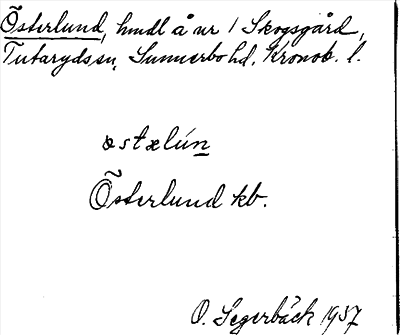 Österlund, hmdl å nr 1 Skogsgård,
Tutaryds sn, Sunnerbo hd, Kronob. l.
østælún
Österlund kb.
O. Segerbäck 1937